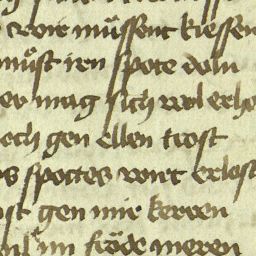 wir müssent kiessen
müst irn spote doln
er mag sich wol erho
och gen ellen trost
s spottes wirt erlost
st gen mir keren
im fröde meren